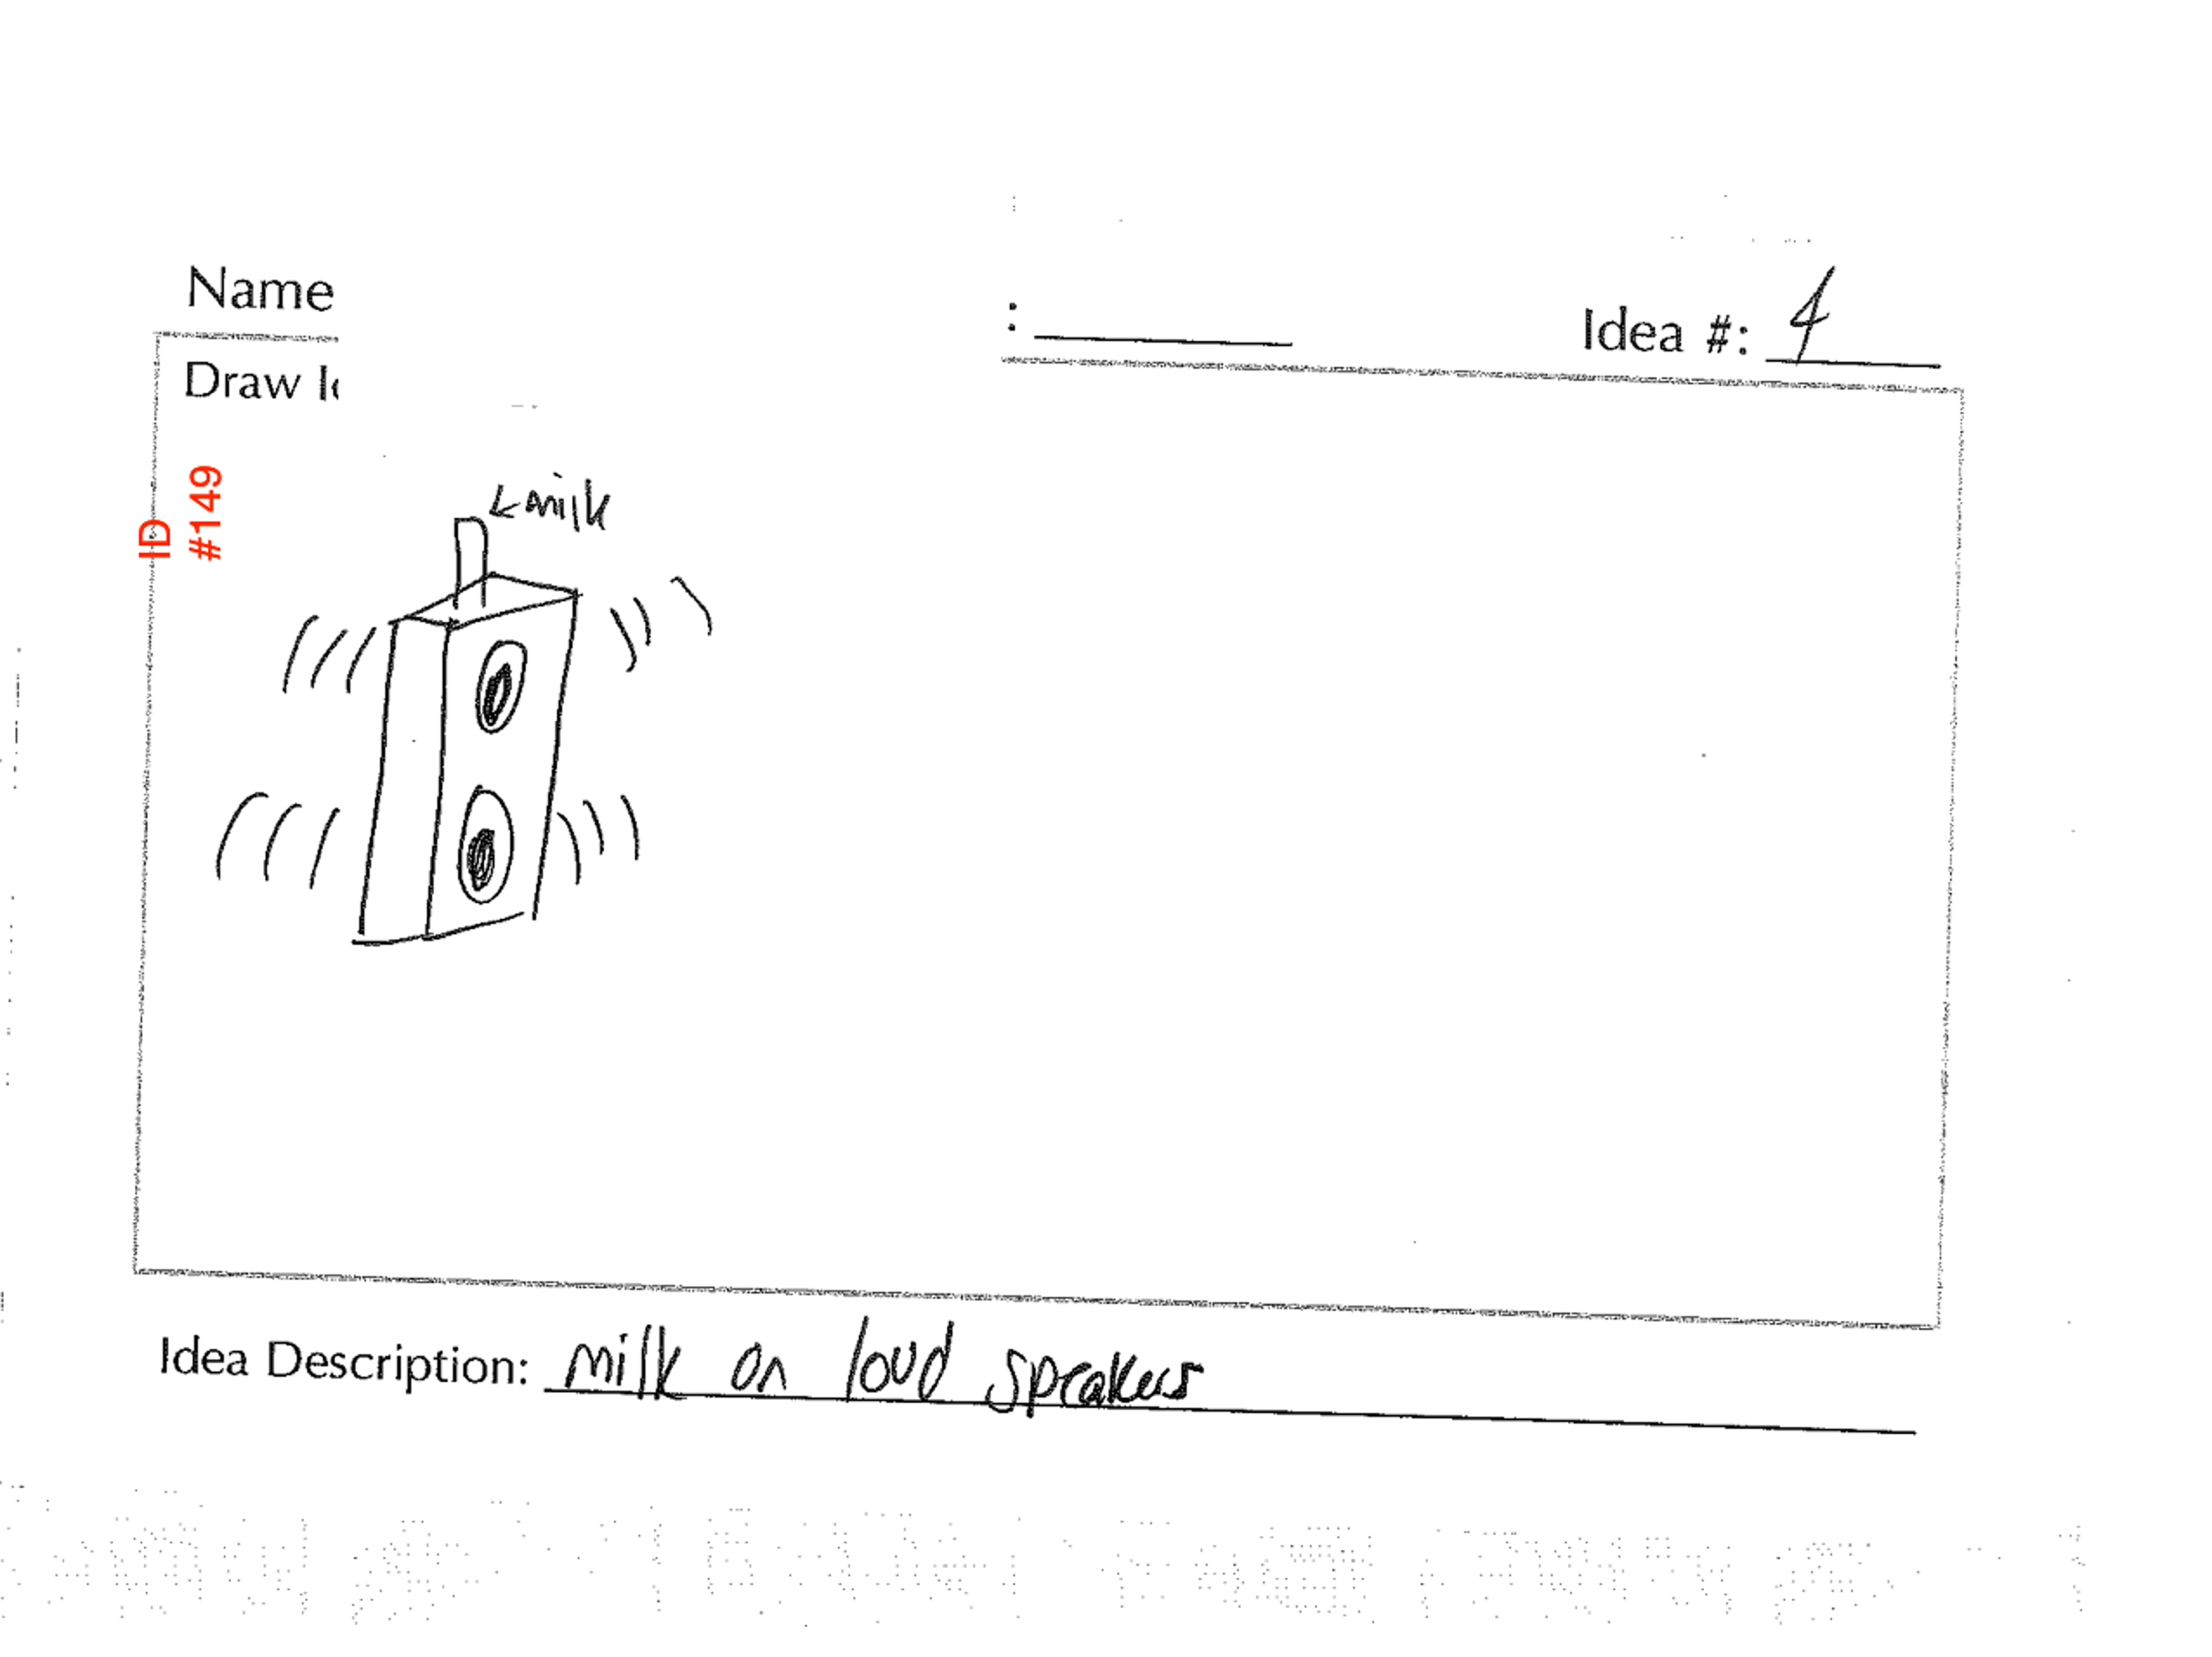 Name
: Idea #: 4
Draw I
ID
#149
←milk
Idea Description: milk on loud speakers